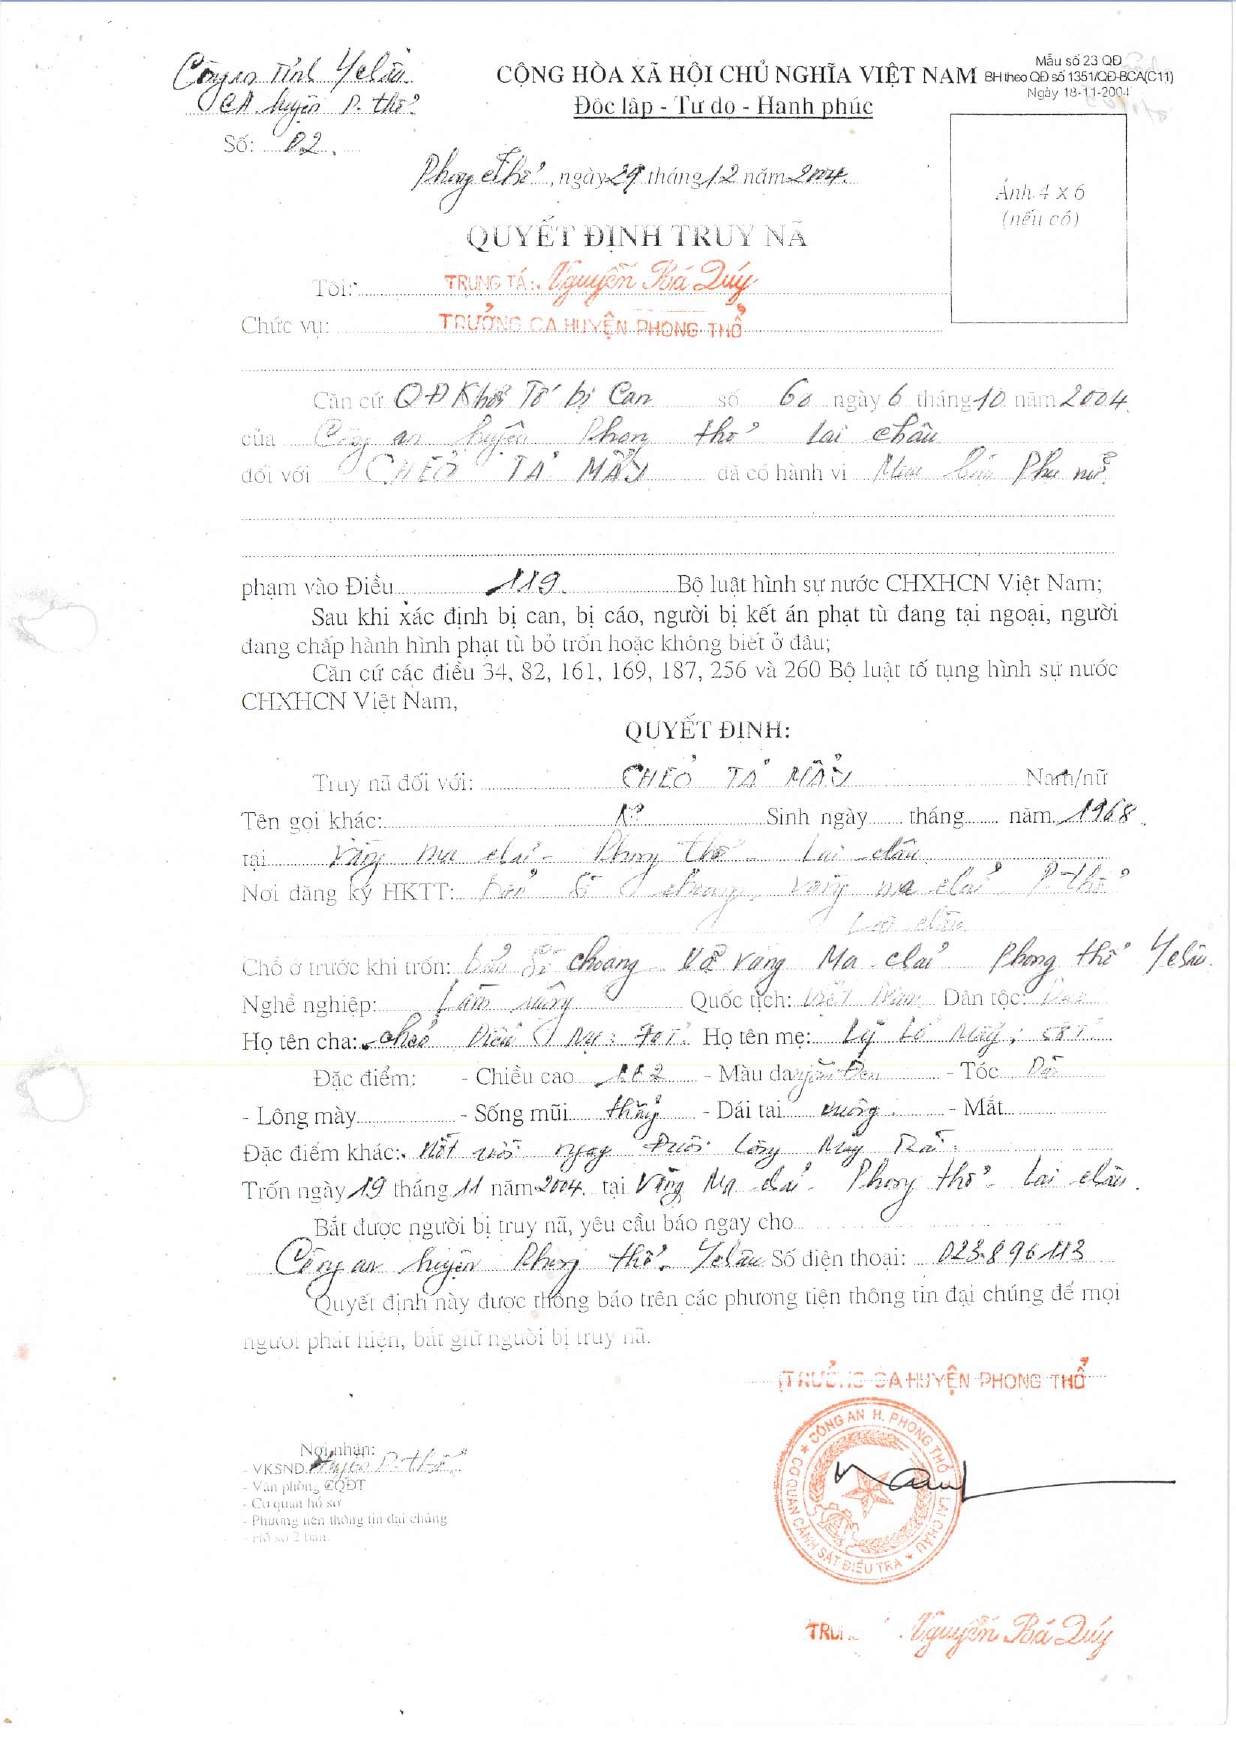 Công an Tỉnh Lchâu
CA huyện P. thổ
Số: 02.
CỘNG HÒA XÃ HỘI CHỦ NGHĨA VIỆT NAM
Độc lập - Tự do - Hạnh phúc
Mẫu số 23 QĐ
BH theo QĐ số 1351/QĐ-BCA(C11)
Ngày 18-11-2004
Phong Thổ, ngày 29 tháng 12 năm 2004.
Ảnh 4 x 6
(nếu có)
QUYẾT ĐỊNH TRUY NÃ
Tôi: TRUNG TÁ: Nguyễn Bá Quý
Chức vụ: TRƯỞNG CA HUYỆN PHONG THỔ
Căn cứ QĐ Khởi Tố bị Can số 60 ngày 6 tháng 10 năm 2004
của Công an huyện Phong thổ Lai châu
đối với CHẺO TẢ MẨY đã có hành vi Mua bán Phụ nữ
phạm vào Điều 119. Bộ luật hình sự nước CHXHCN Việt Nam;
Sau khi xác định bị can, bị cáo, người bị kết án phạt tù đang tại ngoại, người
đang chấp hành hình phạt tù bỏ trốn hoặc không biết ở đâu;
Căn cứ các điều 34, 82, 161, 169, 187, 256 và 260 Bộ luật tố tụng hình sự nước
CHXHCN Việt Nam,
QUYẾT ĐỊNH:
Truy nã đối với: CHẺO TẢ MẨY Nam/nữ
Tên gọi khác: Sinh ngày tháng năm 1968
tại Vàng ma chải - Phong thổ - Lai châu
Nơi đăng ký HKTT: bản Sì choang, vàng ma chải P. thổ
Lai châu
Chỗ ở trước khi trốn: bản Sì choang Vàng Ma chải Phong thổ Lchâu.
Nghề nghiệp: Làm ruộng Quốc tịch: Việt Nam Dân tộc: Dao
Họ tên cha: chẻo 70T. Họ tên mẹ: Lý Lở Mẩy, 68T.
Đặc điểm: - Chiều cao - Màu da ngăm Đen - Tóc Dài
- Lông mày - Sống mũi thẳng - Dái tai vuông. - Mắt
Đặc điểm khác: ngay Dưới Lông Mày Trái.
Trốn ngày 19 tháng 11 năm 2004. tại Vàng Ma chải - Phong thổ - Lai châu.
Bắt được người bị truy nã, yêu cầu báo ngay cho
Công an huyện Phong thổ. Lchâu Số điện thoại: 023.896113
Quyết định này được thông báo trên các phương tiện thông tin đại chúng để mọi
người phát hiện, bắt giữ người bị truy nã.
TRƯỞNG CA HUYỆN PHONG THỔ
CÔNG AN H. PHONG THỔ LAI CHÂU
CƠ QUAN CẢNH SÁT ĐIỀU TRA
Nơi nhận:
- VKSND Huyện P. thổ
- Văn phòng CQĐT
- Cơ quan hồ sơ
- Phương tiện thông tin đại chúng
- Hồ sơ 2 bản.
Nguyễn Bá Quý